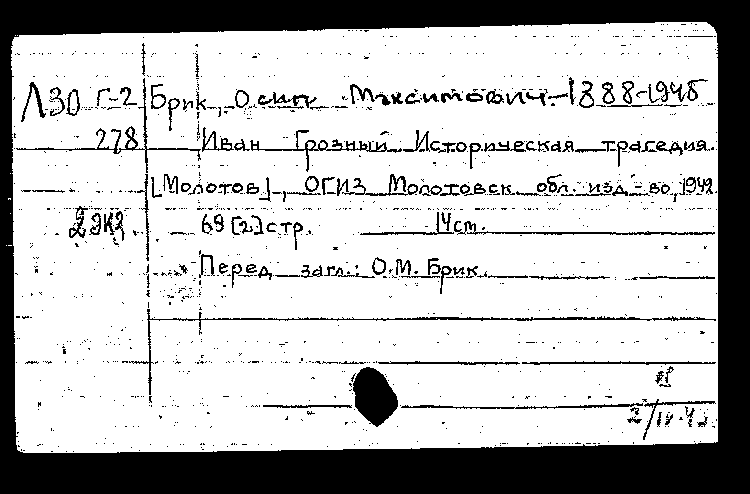 Л30 Г-2 Брик, Осип Максимович. 1888-1945
278 Иван Грозный. Историческая трагедия.
[Молотов], ОГИЗ Молотовск. обл. изд-во, 1942
2 экз. 69 [2.] стр. 14 см.
* Перед загл.: О.М. Брик.
2/IV-43